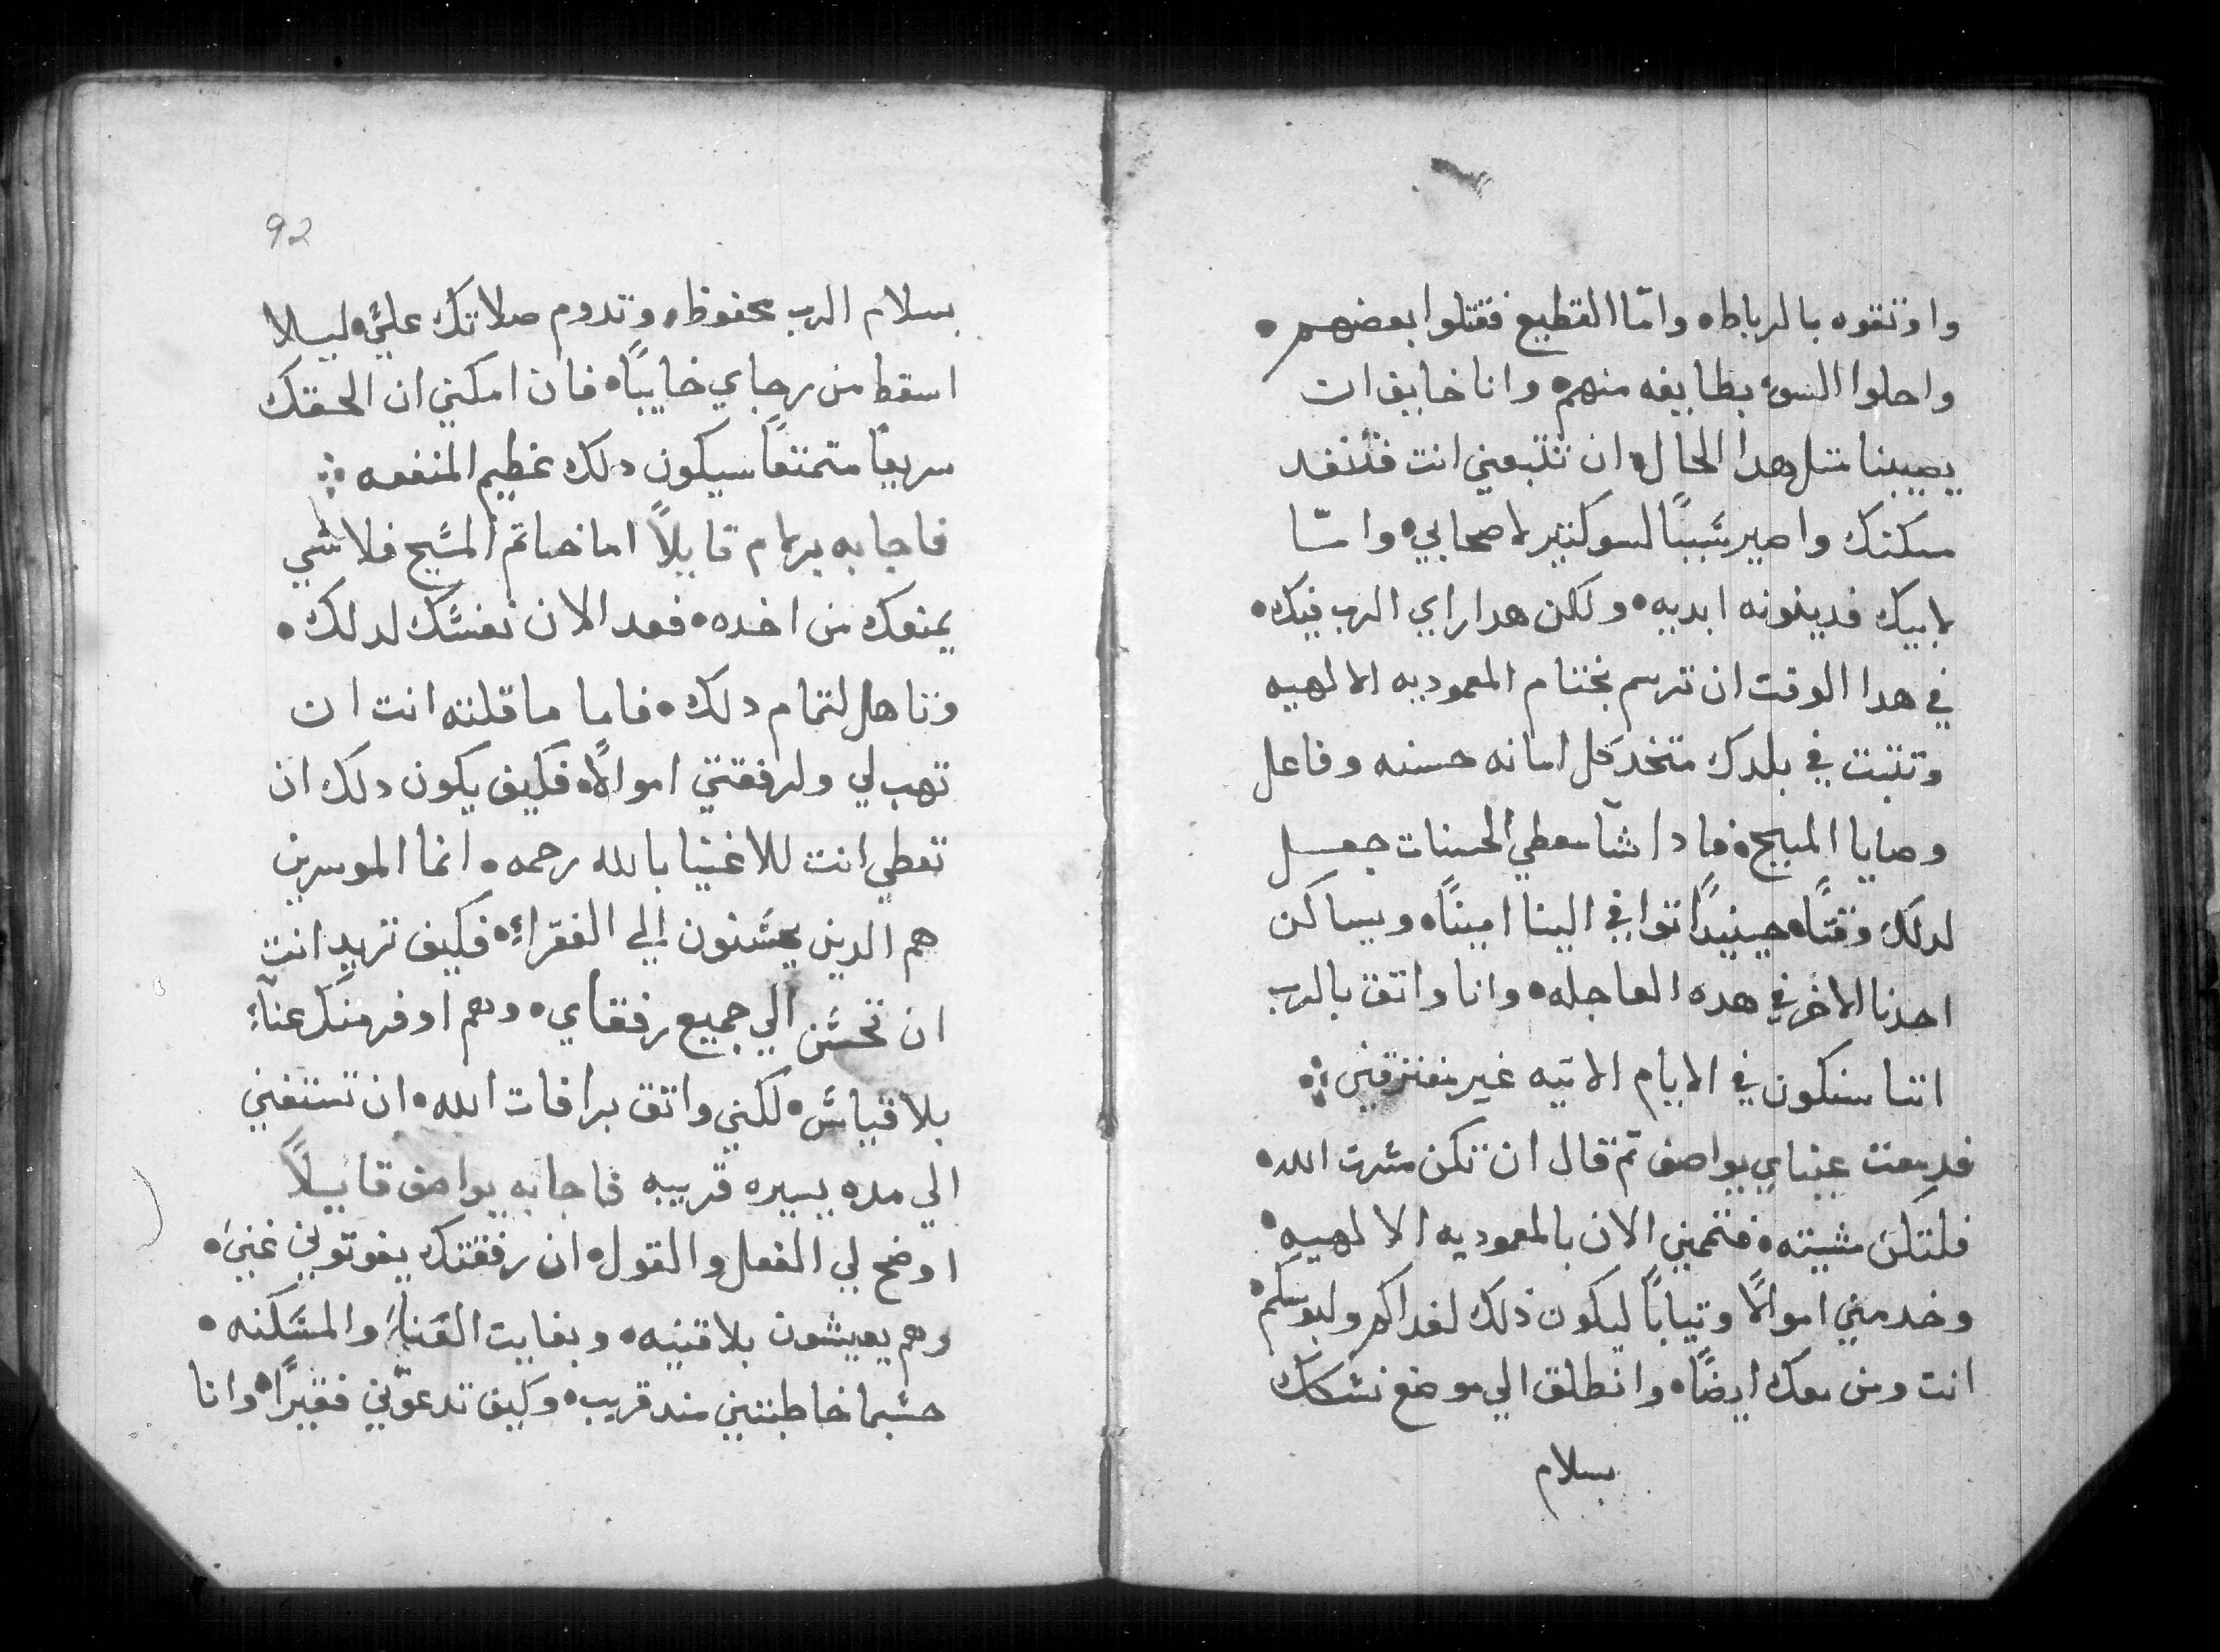 واوتقوه بالرباط۰ وامّا القطيع فقتلوا بعضهم۰
واحلوا السوء بطايفه منهم۰ وانا خايف ان
يصيبنا متل هدا الحال۰ ان تتبعني انت فتفقد
مسكنك واصير سَببًا لسو كتير لاصحابي۰ وامّا
لابيك فدينونه ابديه۰ ولكن هدا راي الرب فيك۰
في هدا الوقت ان ترسم بختام المعموديه الالهيه
وتتبت في بلدك متخد كل امانه حسنه وفاعل
وصايا المسيح۰ فادا شآ معطي الحسنات جعل
لدلك وقتًا۰ حينيدًا توافي الينا امينًا۰ ويساكن
احدنا الاخر في هده العاجله۰ وانا واتق بالرب
اننا سنكون في الايام الاتيه غير مفترقين ؞
فدمعت عيناي يواصف تم قال ان تكن مسَرت الله۰
فلتكن مشيته۰ فتممني الان بالمعموديه الالهيه۰
وخد مني اموالًا وتيابًا ليكون ذلك لغداكم ولبوسكم۰
انت ومن معك ايضًا۰ وانطلق الي موضع نسَكك
بسلام
92
بسلام الرب محفوظ۰ وتدوم صلاتك عليّ۰ ليلا
اسقط من رجاي خايبًا۰ فان امكنني ان الحقك
سريعًا متمتعًا سيكون دلك عظيم المنفعه ؞
فاجابه برلام قايلًا اما خاتم المسَيح فلا شي
يمنعك من اخده۰ فعد الان نفسَك لدلك۰
وتاهل لتمام دلك۰ فاما ما قلته انت ان
تهب لي ولرفقتي اموالًا۰ فكيف يكون دلك ان
تعطي انت للاغنيا بالله رحمه۰ انما الموسرين
هم الدين يحسَنون الي الفقراء۰ فكيف تريد انت
ان تحسَن الي جميع رفقاي۰ وهم اوفر منك غناءً
بلا قياسَ۰ لكني واتق برافات الله۰ ان تستغني
الي مده يسيره قريبه فاجابه يواصف قايلًا
اوضح لي الفعل والقول۰ ان رفقتك يفوتوني غني۰
وهم يعيشون بلا قنيه۰ وبغايت العَنا۰ والمسَكنه۰
حسَبما خاطبتني مند قريب۰ وكيف تدعوّني فقيرًا۰ وانا